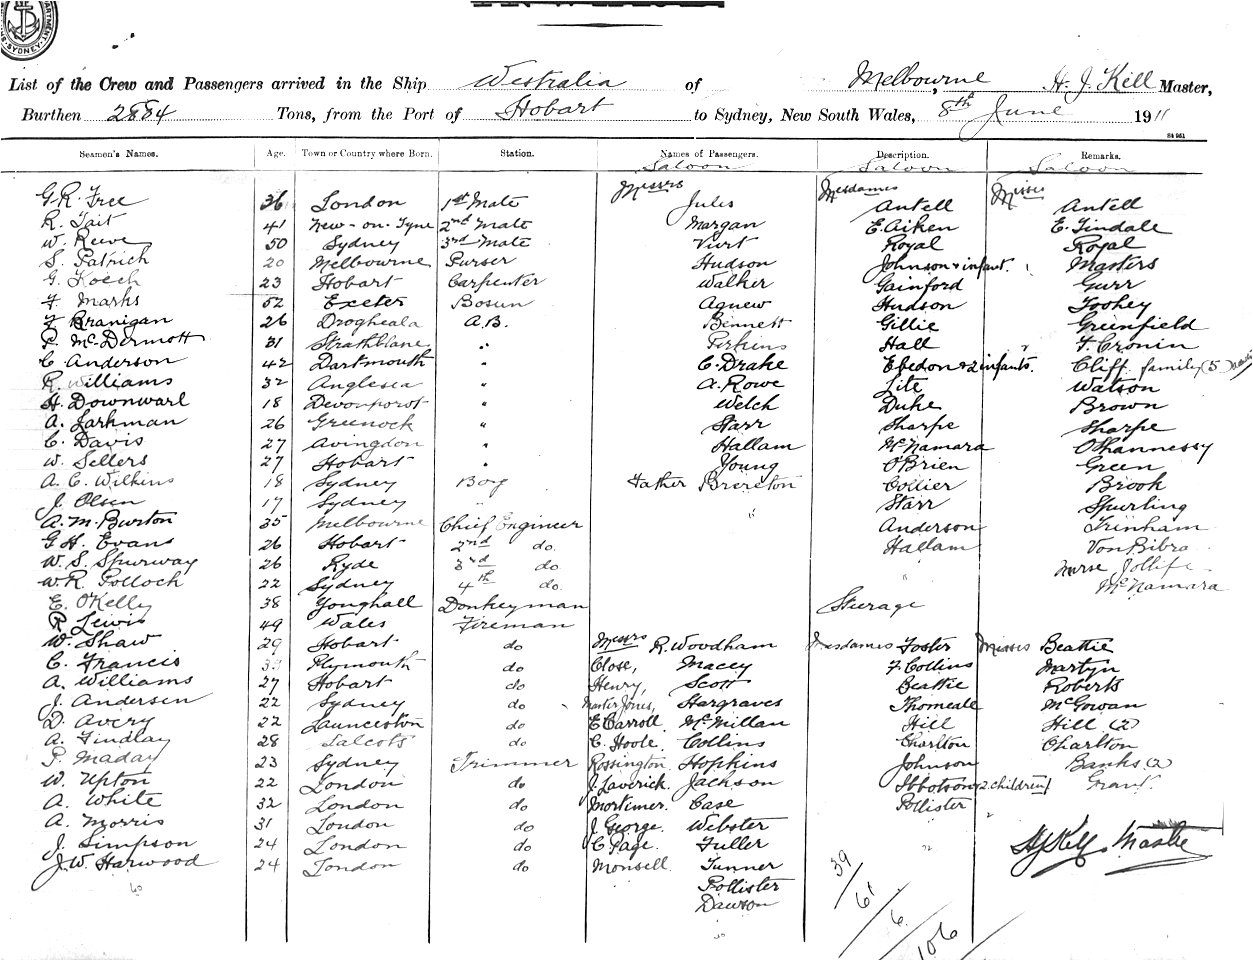 DEPARTMENT. SYDNEY
List of the Crew and Passengers arrived in the Ship Westralia of Melbourne, H. J. Kell Master,
Burthen 2884 Tons, from the Port of Hobart to Sydney, New South Wales, 8th June 1911
St 961
Seamen's Names. Age. Town or Country where Born. Station. Names of Passengers. Description. Remarks.
Saloon Saloon Saloon
Messrs Mesdames Misses
G. R. Free 36 London 1st Mate Jules Antell Antell
R. Tait 41 New-on-Tyne 2nd Mate Margan E. Aiken E. Tindale
W. Reeve 50 Sydney 3rd Mate Royal Royal
S. Patrick 20 Melbourne Purser Hudson Johnson & infant. Masters
G. Koech 23 Hobart Carpenter Walker Gainford Gurr
F. Marks 52 Exeter Bosun Agnew Hudson Toohey
F. Branigan 26 Drogheala A.B. Bennett Gillie Greenfield
P. McDermott 31 Strathblane " Perkins Hall F. Cronin
C. Anderson 42 Dartmouth " C. Drake Ebedon & 2 infants. Cliff family (5)
R. Williams 32 Anglesea " A. Rowe Lite Watson
H. Downward 18 Devonport " Welch Duke Brown
A. Jarkman 26 Greenock " Starr Sharpe Sharpe
C. Davis 27 Avingdon " Hallam McNamara O'Shannessy
W. Sellers 27 Hobart " Young O'Brien Green
A. C. Wilkins 18 Sydney Boy Father Brereton Collier Brook
J. Olsen 17 Sydney " Starr Spurling
A. M. Burton 35 Melbourne Chief Engineer Anderson Trinham
G. H. Evans 26 Hobart 2nd do. Hallam Von Bibra
W. S. Spurway 26 Ryde 3rd do. Nurse Jollife
W. R. Polloch 22 Sydney 4th do. McNamara
E. O'Kelly 38 Youghall Donkeyman Sturage
R. Lewis 49 Wales Fireman
W. Shaw 29 Hobart do Messrs R. Woodham Mesdames Foster Misses Beattie
C. Francis Plymouth do Close, Macey F. Collins Martyn
A. Williams 27 Hobart do Henry, Scott Beattie Roberts
J. Andersen 22 Sydney do Master Jones, Hargraves Thomeale McGowan
D. Avery 22 Launceston do E. Carroll. McMillan Hill Hill (2)
A. Findlay 28 Salcots do C. Hoole. Collins Charlton Charlton
P. Maday 23 Sydney Trimmer Rossington Hopkins Johnson Banks (2)
W. Upton 22 London do J. Laverick. Jackson Ibbotson (2 children) Grant.
A. White 32 London do Mortimer. Case Pollister
A. Morris 31 London do J. George. Webster
J. Simpson 24 London do C. Page. Fuller H J Kell Master
J. W. Harwood 24 London do Monsell Tunner
Pollister
Dawson
39/
61/
6/
106